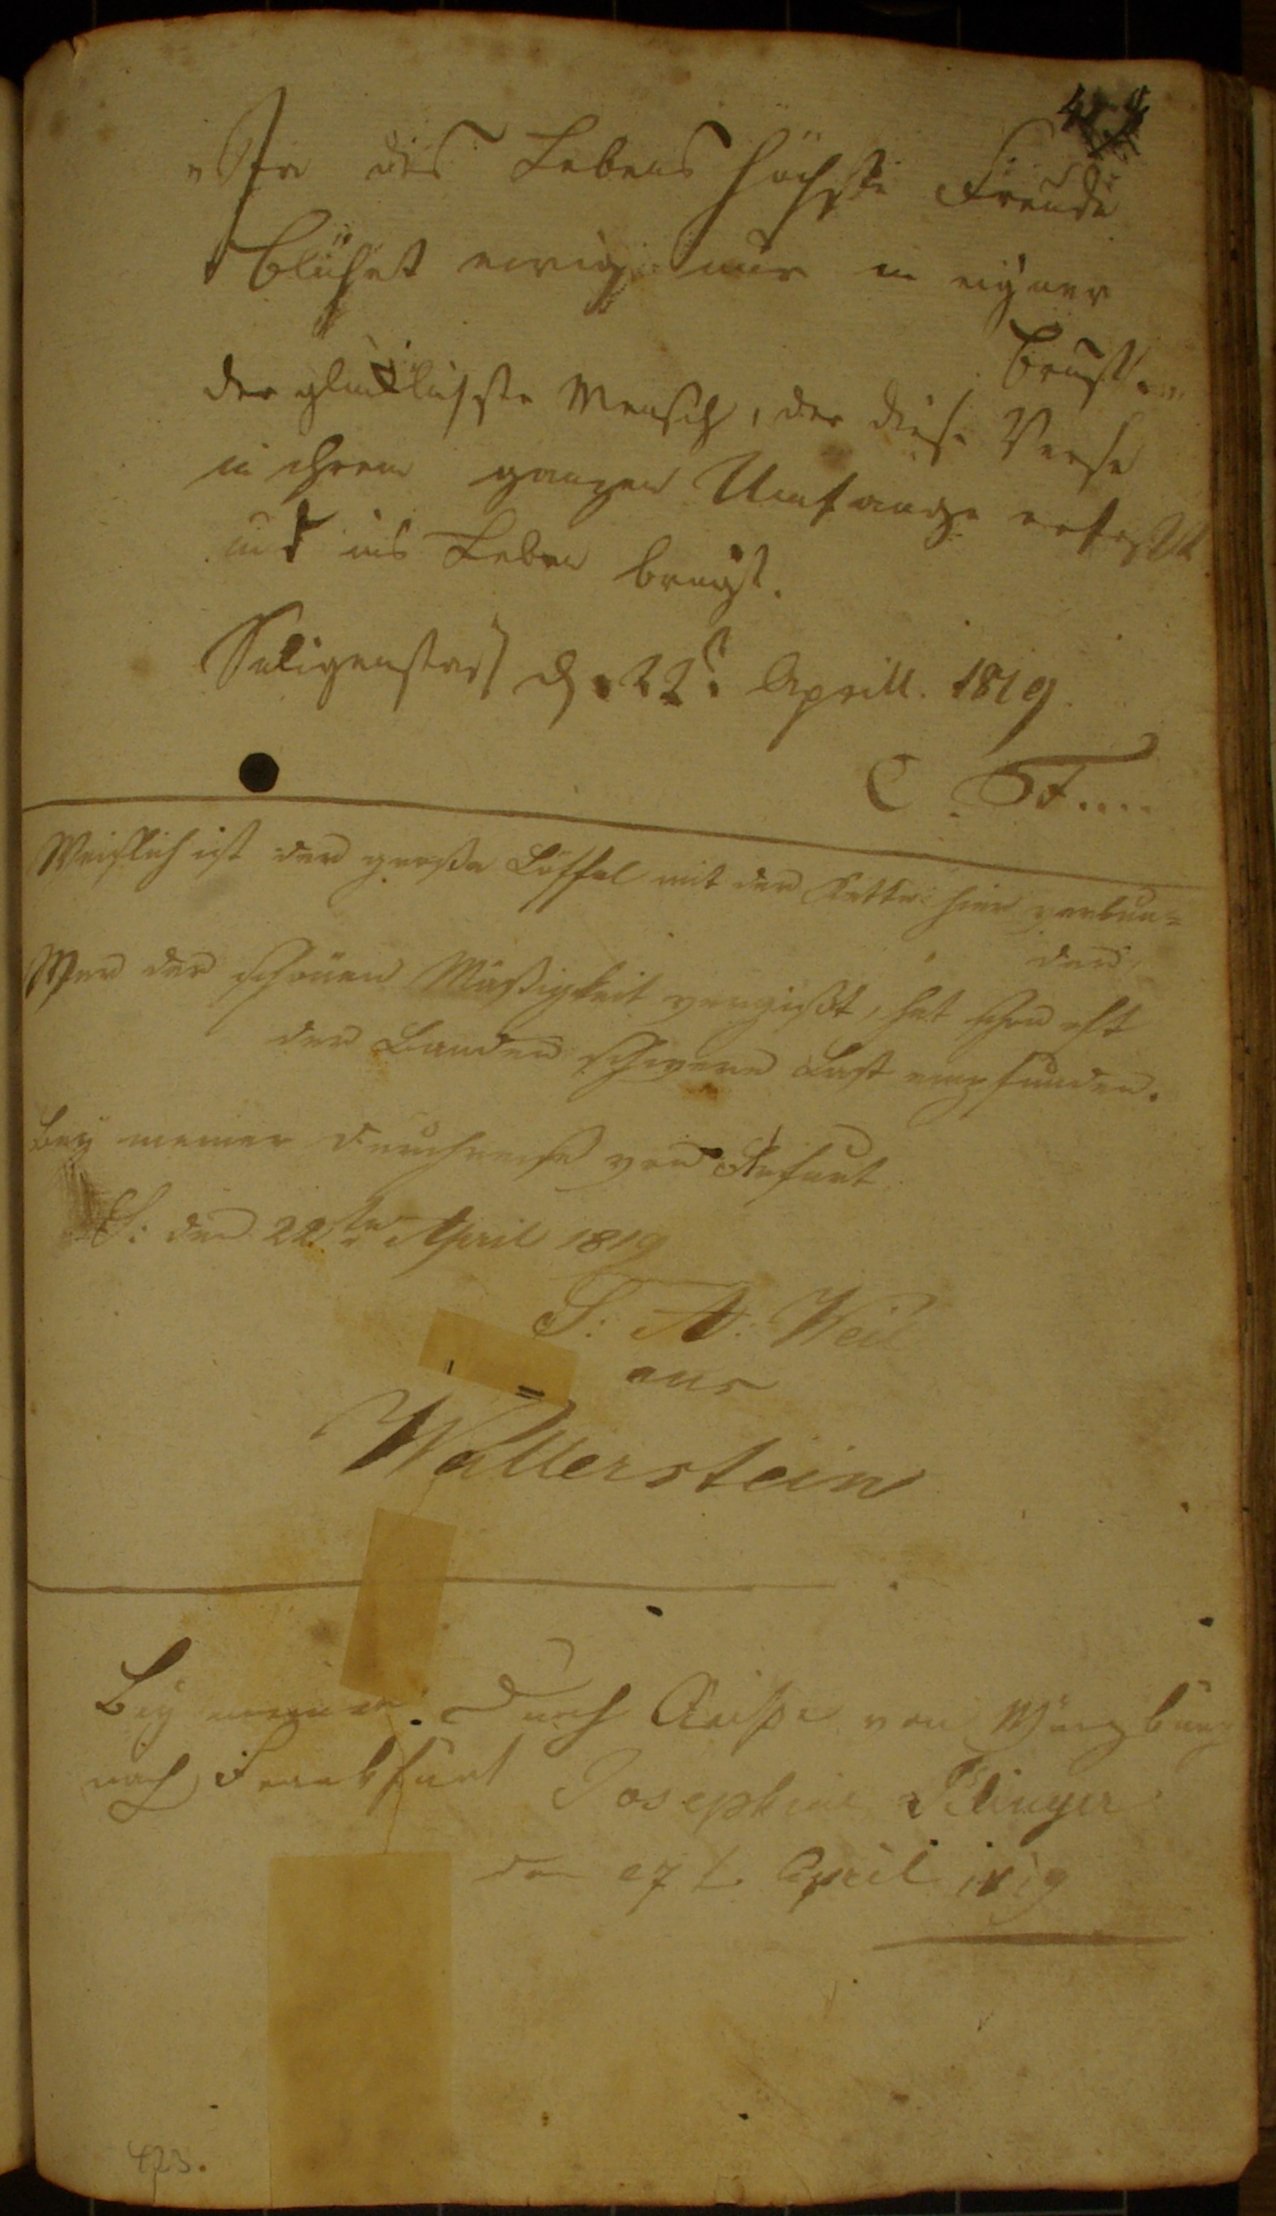 "Ja des Lebens höchste Freude
blühet ewig nur in eigner
Brust."
der glücklichste Mensch, der diese Verse
in ihrem ganzen Umfange erfaßt
und ins Leben bringt.
Seligenstadt d. 22t. Aprill. 1819.
C. F....
Weislich ist der große Löffel mit der Kette hier verbun=
den,
Wer der schönen Mäßigkeit vergißt, hat schon oft
der Banden schwere Last empfunden.
Bey meiner Durchreise von
S: den 22ten April 1819
S: A: Weil
aus
Wallerstein
Bey meiner Durch Reise von Würzburg
nach Frankfurt Josephine
den 27 t. April 1819
423.